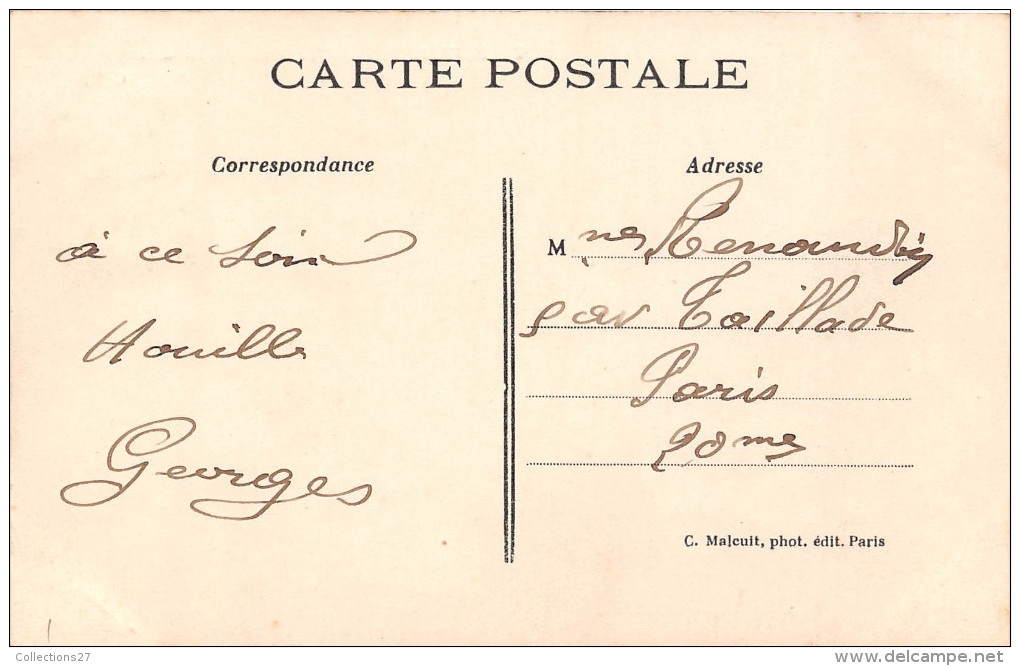 CARTE POSTALE
Correspondance
à ce soir
Houille
Georges
Adresse
M
par Taillade
Paris
20 me
C. Malcuit, phot. édit. Paris
Collections27
delcampe.net